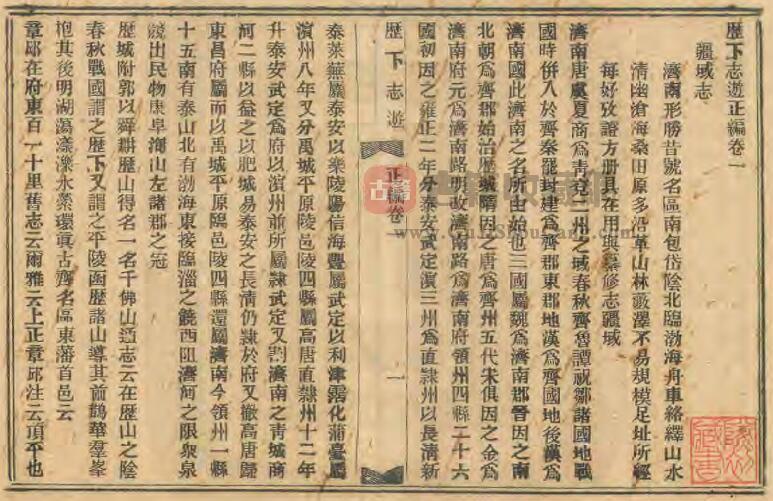 歷下志遊正編卷一
疆域志
濟南形勝昔號名區南包岱陰北臨渤海舟車絡繹山水
清幽滄海桑田原多沿革山林藪澤不易規模足址所經
每好攷證方册具在用與纂修志疆域
濟南唐虞夏商爲靑兗二州之域春秋齊魯譚祝鄒諸國地戰
國時併入於齊秦罷封建爲齊郡東郡地漢爲齊國地後漢爲
濟南國此濟南之名所由始也三國屬魏爲濟南郡晉因之南
北朝爲齊郡始治歷城隋因之唐爲齊州五代宋俱因之金爲
濟南府元爲濟南路明改濟南路爲濟南府領州四縣二十六
國初因之雍正二年分泰安武定濱三州爲直隸州以長清新
歷下志遊
正編卷一
一
泰萊蕪屬泰安以樂陵陽信海豐屬武定以利津霑化蒲臺屬
濱州八年又分禹城平原陵邑陵四縣屬高唐直隸州十二年
升泰安武定爲府以濱州前所屬隸武定又割濟南之靑城商
河二縣以益之以肥城易泰安之長清仍隸於府又撤高唐歸
東昌府屬而以禹城平原臨邑陵四縣還屬濟南今領州一縣
十五南有泰山北有渤海東接臨淄之饒西阻濟河之限衆泉
競出民物康阜海山左諸郡之冠
歷城附郭以舜耕歷山得名一名千佛山通志云在歷山之陰
春秋戰國謂之歷下又謂之平陵函歷諸山導其前鵲華羣峯
抱其後明湖蕩漾濼水縈環眞古齊名區東藩首邑云
章邱在府東百一十里舊志云爾雅云上正章邱注云頂平也
古籍
www.GujiShuguang.com